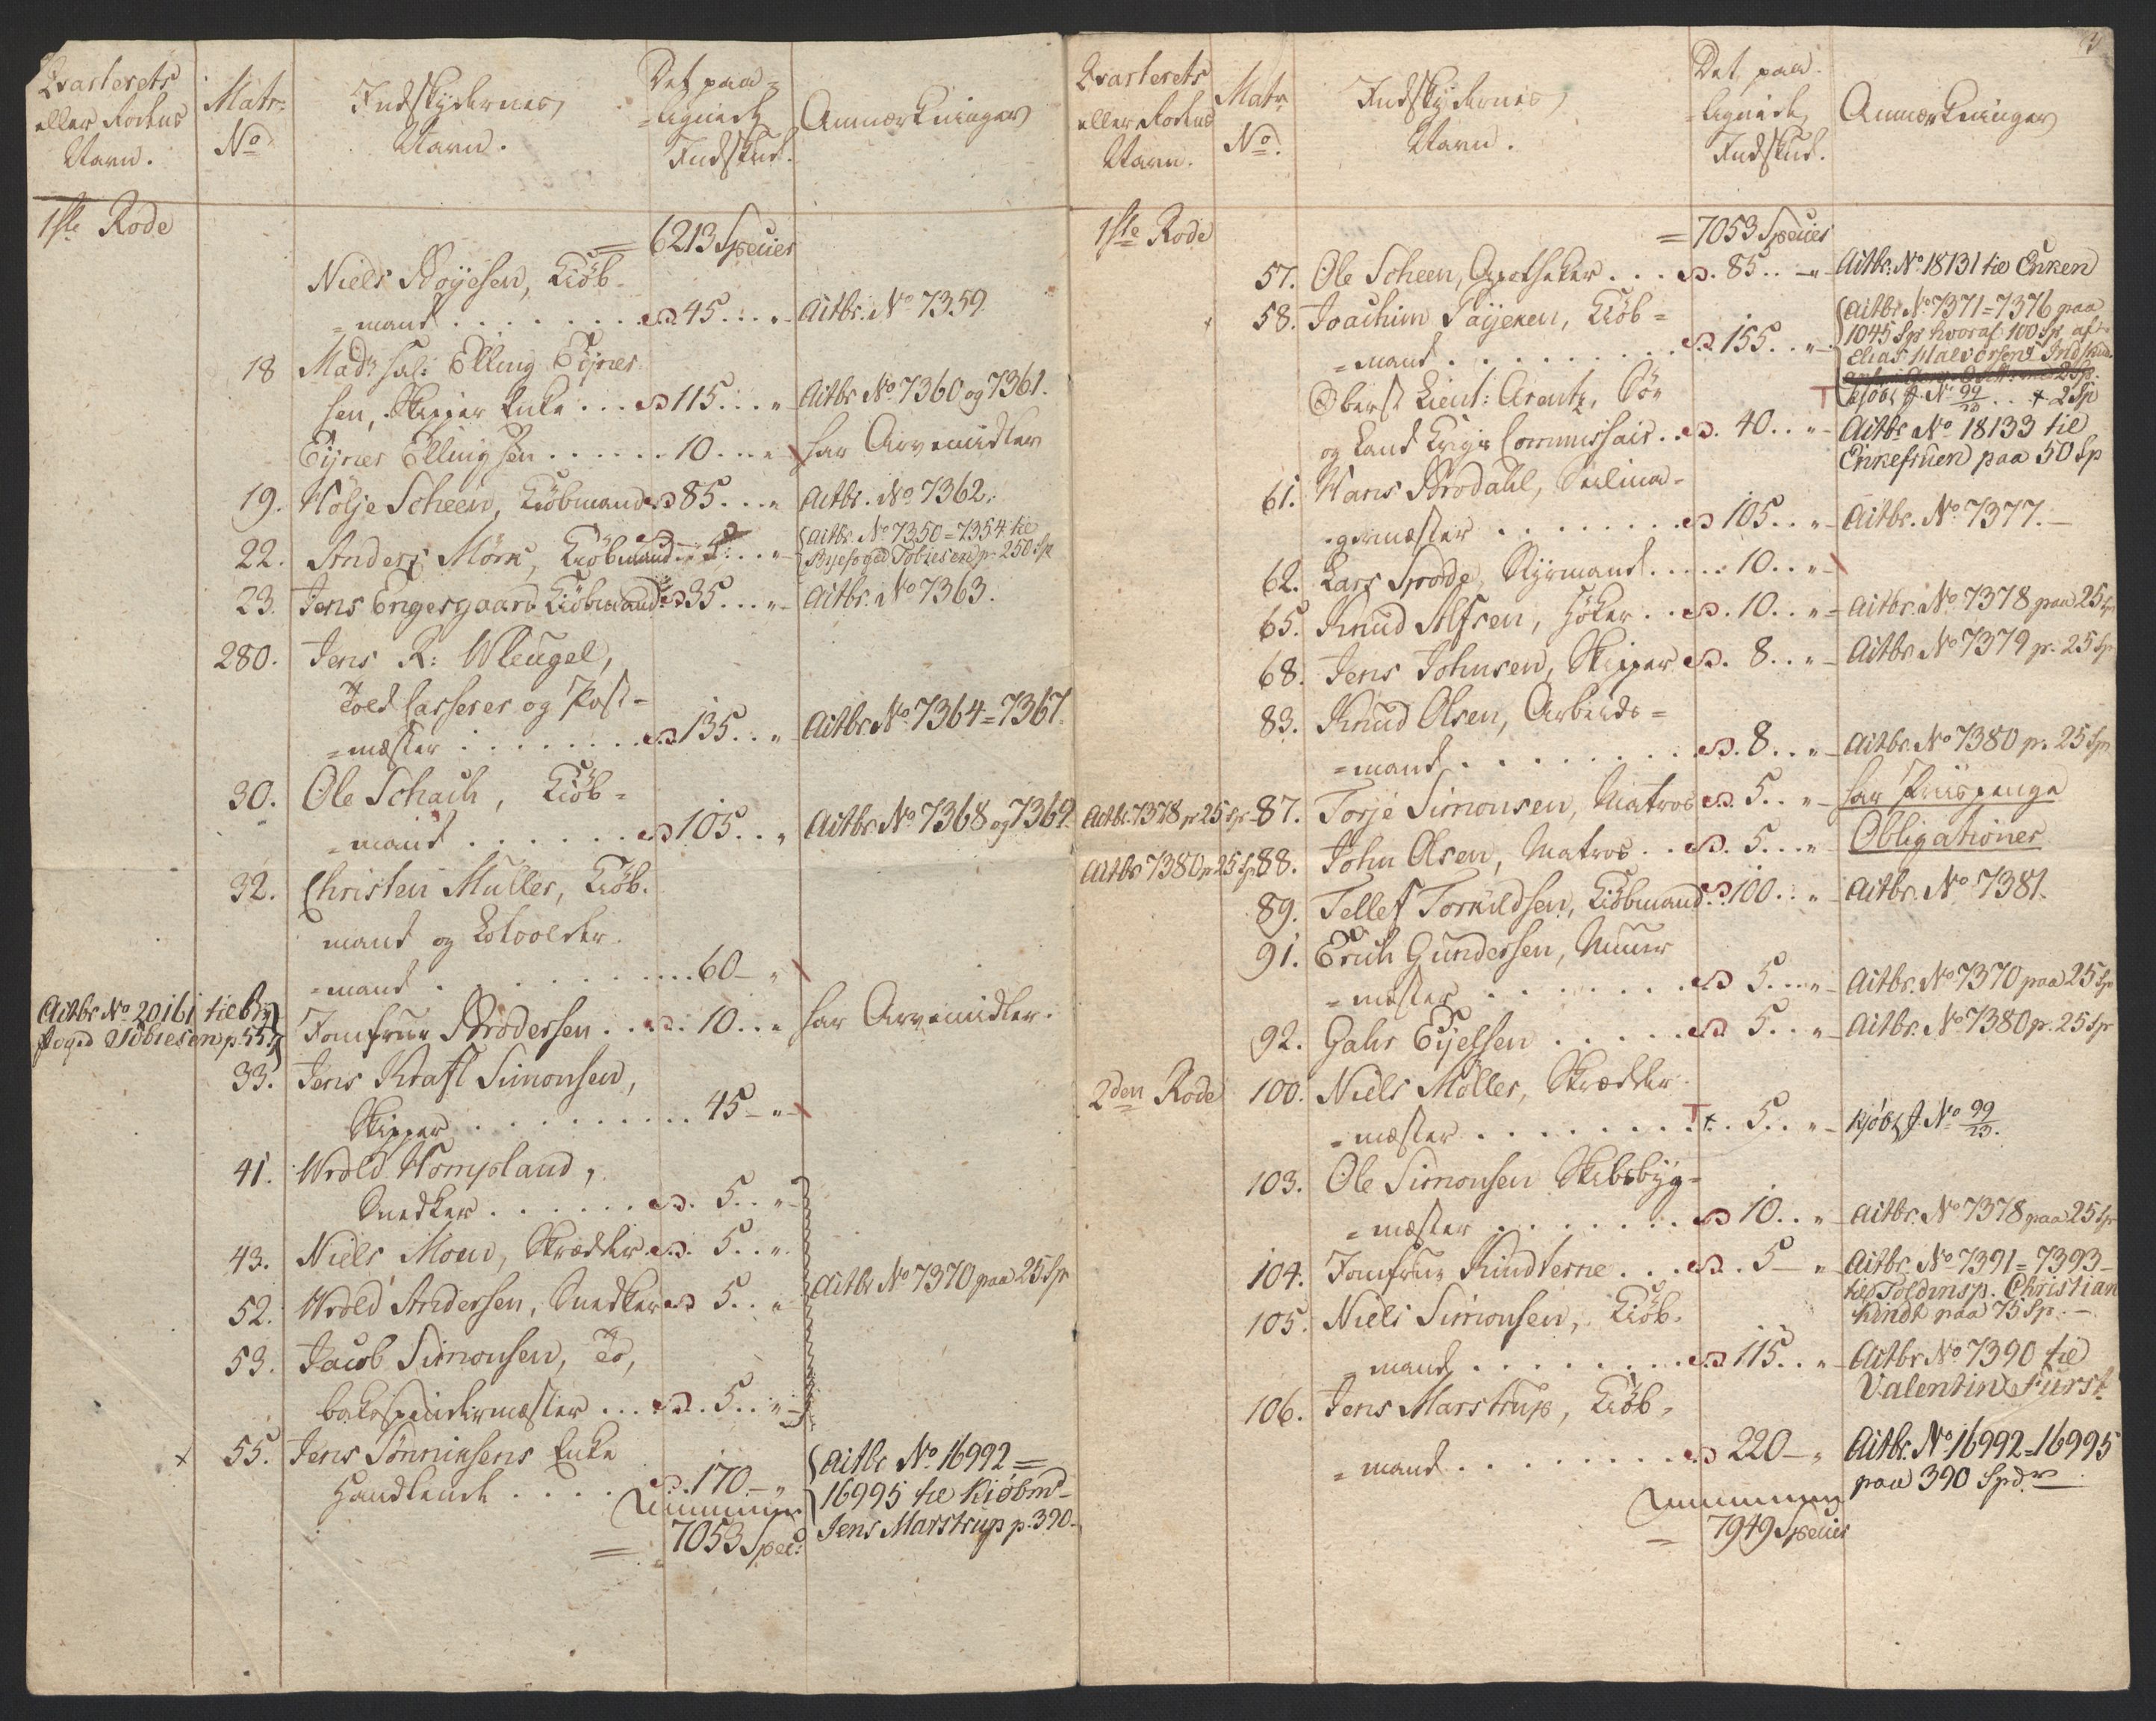 Qvarterets
eller Rodens
Navn.
Matr:
No
Indskydernes
Navn.
Det paa=
=lignede
Indskud.
Anmærkninger
1ste Rode
= 6213 Specier
Niels Boÿesen, Kiøb=
=mand . . . . . . . 45 . . " Aitbr. No 7359.
18 Mad: sal: Elling Eÿnes
sen, Skipper Enke . . . 115 . . . " Aitbr No 7360 og 7361.
Eÿnes Ellingsen . . . . . . 10 . . . " har Arvemidler
19. Holje Scheen, Kiøbmand 85 . . . " Aitbr. No 7362.
22. Anders Mörk, Kiøbmand 5 . . . " Aitbr. No 7350=7354 til
Byefoged Tobiesen p. 250 Sp
23. Jens Engergaard Kiøbmand 35 . . . " Aitbr. No 7363.
280. Jens R: Wleugel,
Told Casserer og Post=
=mæster . . . . . . . 135 . . " Aitbr. No 7364=7367.
30. Ole Schach, Kiøb=
=mand . . . . . . 105 . . " Aitbr No 7368 og 7369.
32. Christen Müller, Kiøb=
mand og
=mand . . . . . . . . . 60 — "
Aitbr No 20161 til By
foged Tobiesen p. 55
Jomfrue Brodersen . . . 10 . . " har Arvemidler.
33. Jens Kraft Simonsen,
Skipper . . . . . . . . . 45 — "
41. Wrold Hompland,
Snedker . . . . . . 5 . . "
43. Niels Moen, Skrædder 5 . . "
52. Wrold Andersen, Snedker 5 . . "
Aitbr No 7370 paa 25 Sp
53. Jacob Simonsen, To,
bakspindermæster . . . 5 . . "
x 55. Jens Tönninsens Enke
Handlende . . . . 170 — "
Aitbr No 16992=
16995 til Kiøbmd
Jens Marstrup p. 390.
= 7053 Spec:
Qvarterets
eller Rodens
Navn.
Matr
No.
Indskydernes
Navn.
Det paa=
=lignede
Indskud.
Anmærkninger
1ste Rode
= 7053 Specier
57. Ole Scheen, Apotheker . . . 85 . . — " Aitbr. No 18131 til Enken
58. Joachim Paÿeken, Kiøb=
=mand . . . . . . . . . 155 . . "
Aitbr. No 7371=7376 paa
1045 Sp hvoraf 100 Sp af
Elias Halvorsens Indskud
Kjøbt J. No 99/23 . . + 2 Sp
Oberst Lieut: Arentz, Sö=
og Land Krigs Commissair . . 40 . . "
Aitbr No 18133 til
Enkefruen paa 50 Sp
61. Hans Brodahl, Seilma=
=germæster . . . . . . . . 105 . . " Aitbr. No 7377.
62. Lars Sprode, Styrmand . . . . . 10 . . "
65. Knud Alfsen, Høker . . 10 . . " Aitbr. No 7378 paa 25 Sp
68. Jens Johnsen, Skipper 8 . . " Aitbr No 7379 p. 25 Sp
83. Knud Olsen, Arbeids=
=mand . . . . . . . . 8 . . " Aitbr. No 7380 p. 25 Sp
Aitbr. 7378 p 25 Sp 87. Torje Simonsen, Matros 5 . . " har Priispenge
Aitbr 7380 p 25 Sp 88. John Olsen, Matros . . 5 . . . " Obligationer
89. Tellef Torkildsen, Kiøbmand 100 . . " Aitbr. No 7381.
91. Erich Gundersen, Muur
=mæster . . . . . . . 5 . . . " Aitbr. No 7370 paa 25 Sp
92. Gahr Eÿelsen . . . . . 5 . . " Aitbr. No 7380 p. 25 Sp
2den Rode
100. Niels Möller, Skrædder
=mæster . . . . . . . . 5 . . " Kjøbt J. No 99/23.
103. Ole Simonsen Skibsbÿg=
=mæster . . . . . . . . 10 . . " Aitbr. No 7378 paa 25 Sp
104. Jomfrue Kindterne . . . 5 — " Aitbr. No 7391=7393
til Toldinsp. Christian
Kindt paa 75 Sp. —
105. Niels Simonsen, Kiøb=
=mand . . . . . . . 115 . . " Aitbr No 7390 til
Valentin Fürst.
106. Jens Marstrup, Kiøb=
=mand . . . . . . . . 220 — " Aitbr. No 16992=16995
paa 390 Spdr.
= 7949 Specier